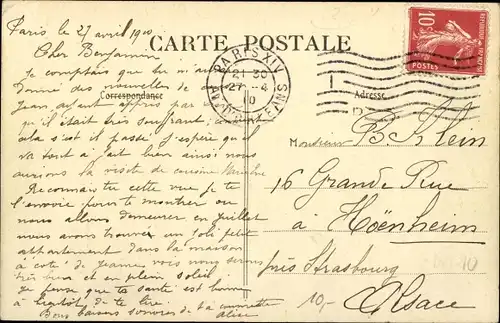 Paris le 27 avril 1910
CARTE POSTALE
Cher Benjamin
Je comptais que tu m'aurais
donné des nouvelles de
Correspondance
Jean ayant appris par
qu'il était très souffrant,
cela s'est il passé j'espère qu'il
va tout à fait bien ainsi nous
aurions la visite de cousine
Reconnais tu cette vue je te
l'envoie pour te montrer où
nous allons demeurer en juillet
nous avons trouvé un joli petit
appartement dans la maison
à côté de Jeanne vous nous serons
très bien et en plein soleil
je pense que ta santé est bonne
à bientôt de te lire.
Bons baisers sonores de ta
Alice
PARIS XIV
21 30
27 - 4
10
10c
REPUBLIQUE FRANÇAISE
POSTES
Adresse
Monsieur B. Klein
16 Grande Rue
à Hoënheim
près Strasbourg
Alsace
10,-